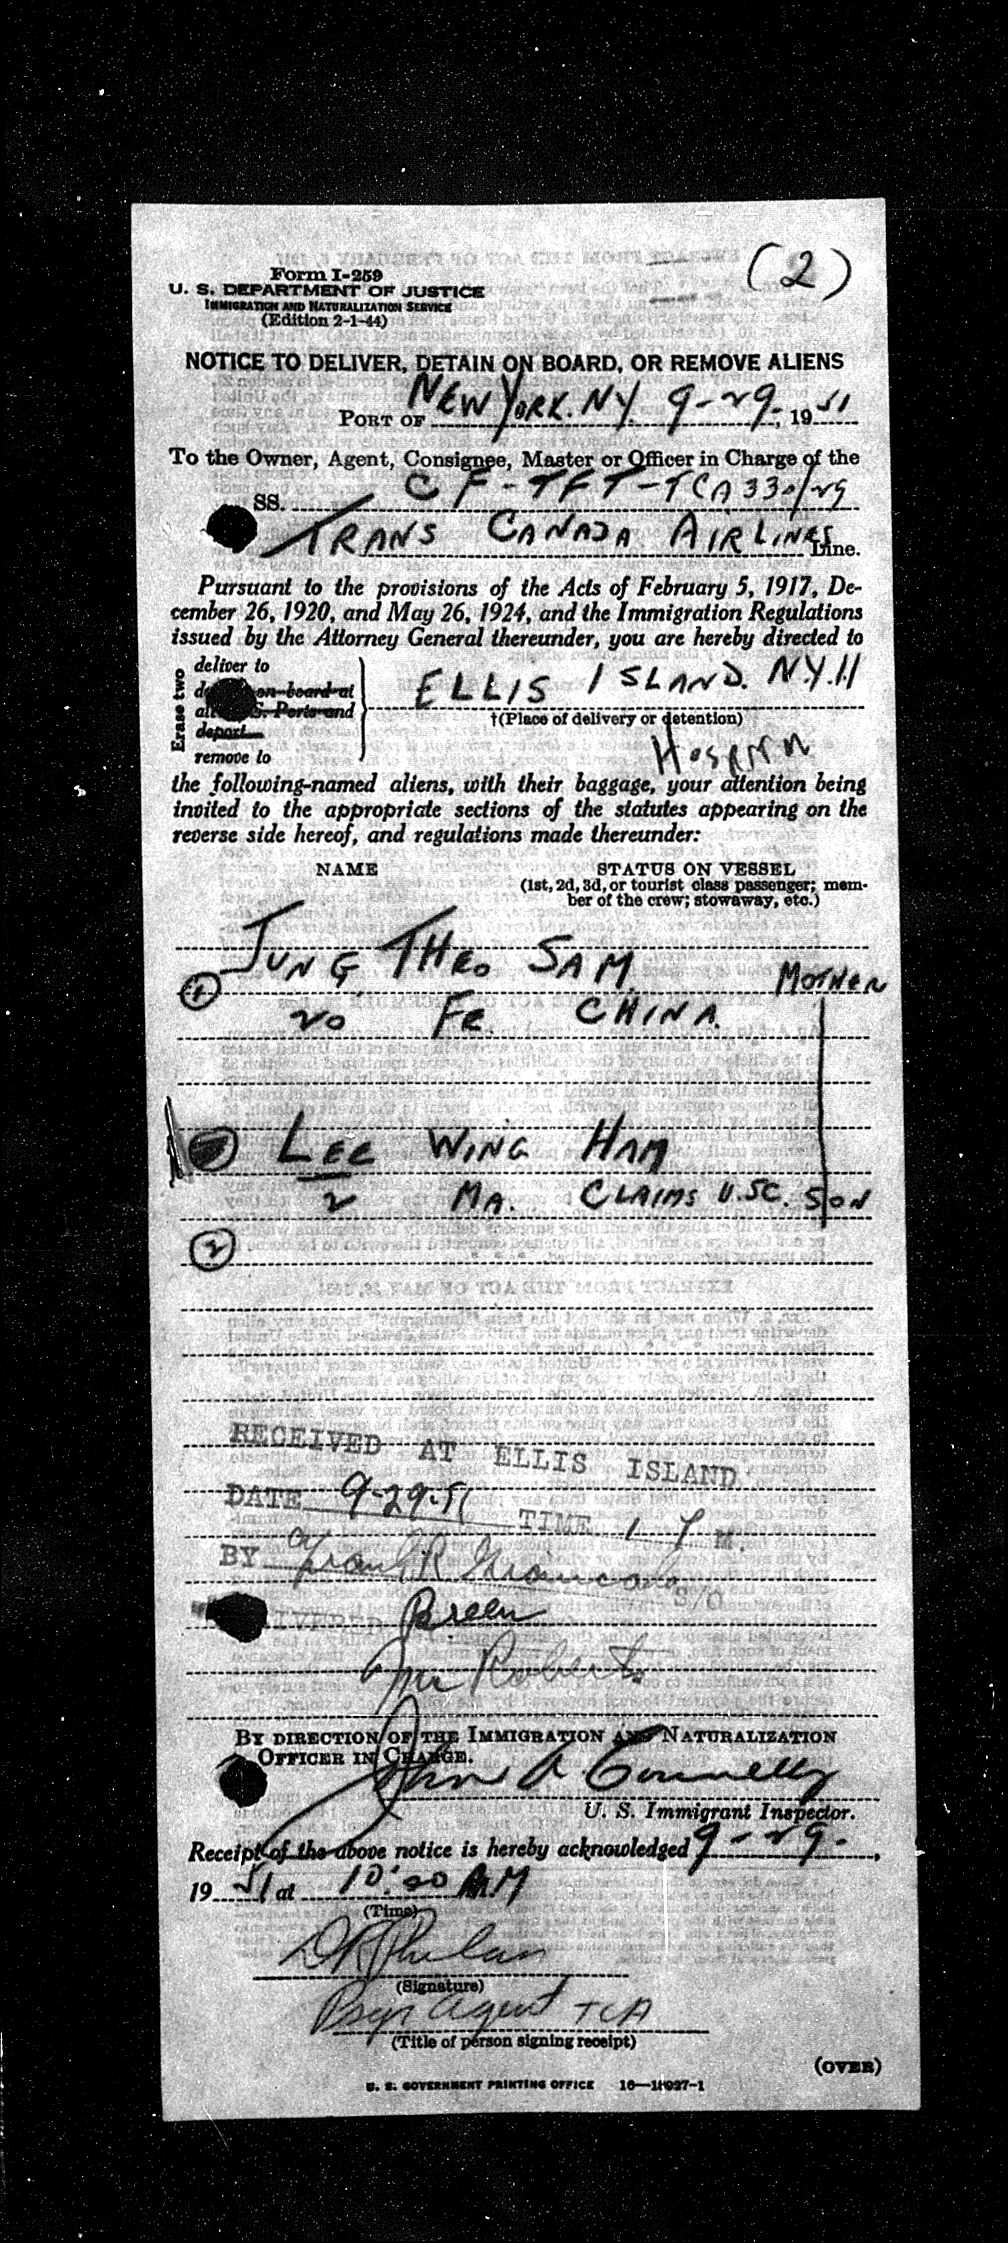 (2)
Form I-259
U. S. DEPARTMENT OF JUSTICE
IMMIGRATION AND NATURALIZATION SERVICE
(Edition 2-1-44)
NOTICE TO DELIVER, DETAIN ON BOARD, OR REMOVE ALIENS
PORT OF NEW YORK. NY. 9-29-, 1951
To the Owner, Agent, Consignee, Master or Officer in Charge of the
SS. CF-TFT-TCA 330/29
TRANS CANADA AIRLINES Line.
Pursuant to the provisions of the Acts of February 5, 1917, De-
cember 26, 1920, and May 26, 1924, and the Immigration Regulations
issued by the Attorney General thereunder, you are hereby directed to
Erase two
deliver to
on board at
Ports and
depart
remove to
ELLIS ISLAND. N.Y.H
†(Place of delivery or detention)
the following-named aliens, with their baggage, your attention being
invited to the appropriate sections of the statutes appearing on the
reverse side hereof, and regulations made thereunder:
NAME
STATUS ON VESSEL
(1st, 2d, 3d, or tourist class passenger; mem-
ber of the crew; stowaway, etc.)
JUNG, THEO SAM
1 MOTHER
20 FE CHINA.
LEE WING HAM
2 MA. CLAIMS U.S.C. SON
2
RECEIVED AT ELLIS ISLAND
DATE 9-29-51 TIME 1 P M.
BY Frank R
S/O
Breen
Mr Roberts
BY DIRECTION OF THE IMMIGRATION AND NATURALIZATION
OFFICER IN CHARGE.
John A Connelly
U. S. Immigrant Inspector.
Receipt of the above notice is hereby acknowledged 9-29-,
19 51 at 10:20 AM
(Time)
D R Phelan
(Signature)
Psgr Agent TCA
(Title of person signing receipt)
(OVER)
U. S. GOVERNMENT PRINTING OFFICE